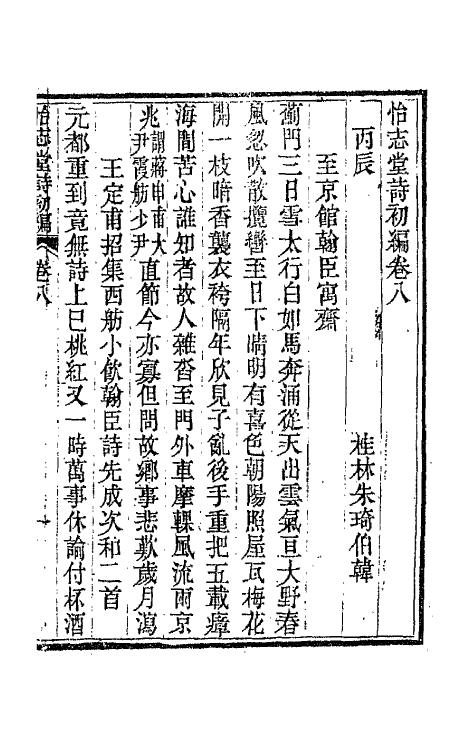 怡志堂詩初編卷八
桂林朱琦伯韓
丙辰
至京館翰臣寓齋
薊門三日雪太行白如馬奔涌從天出雲氣亘大野春
風忽吹散攬轡至日下晴明有喜色朝陽照屋瓦梅花
開一枝暗香襲衣袴隔年欣見子亂後手重把五載瘴
海間苦心誰知者故人雜沓至門外車摩轢風流兩京
兆謂蔣申甫大尹霞舫少尹直節今亦寡但問故鄉事悲歎歲月瀉
王定甫招集西舫小飲翰臣詩先成次和二首
元都重到竟無詩上巳桃紅又一時萬事休論付杯酒
怡志堂詩初編
卷八
一